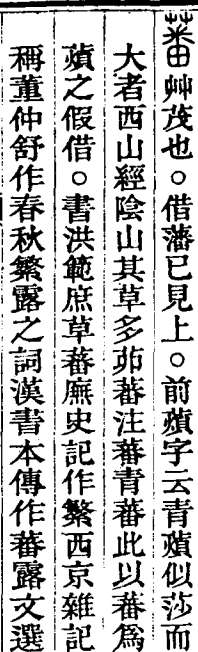 蕃艸茂也○借藩已見上○前薠字云青薠似莎而
大者西山經陰山其草多茆蕃注蕃青蕃此以蕃爲
薠之假借○書洪範庶草蕃廡史記作繁西京雜記
稱董仲舒作春秋繁露之詞漢書本傳作蕃露文選